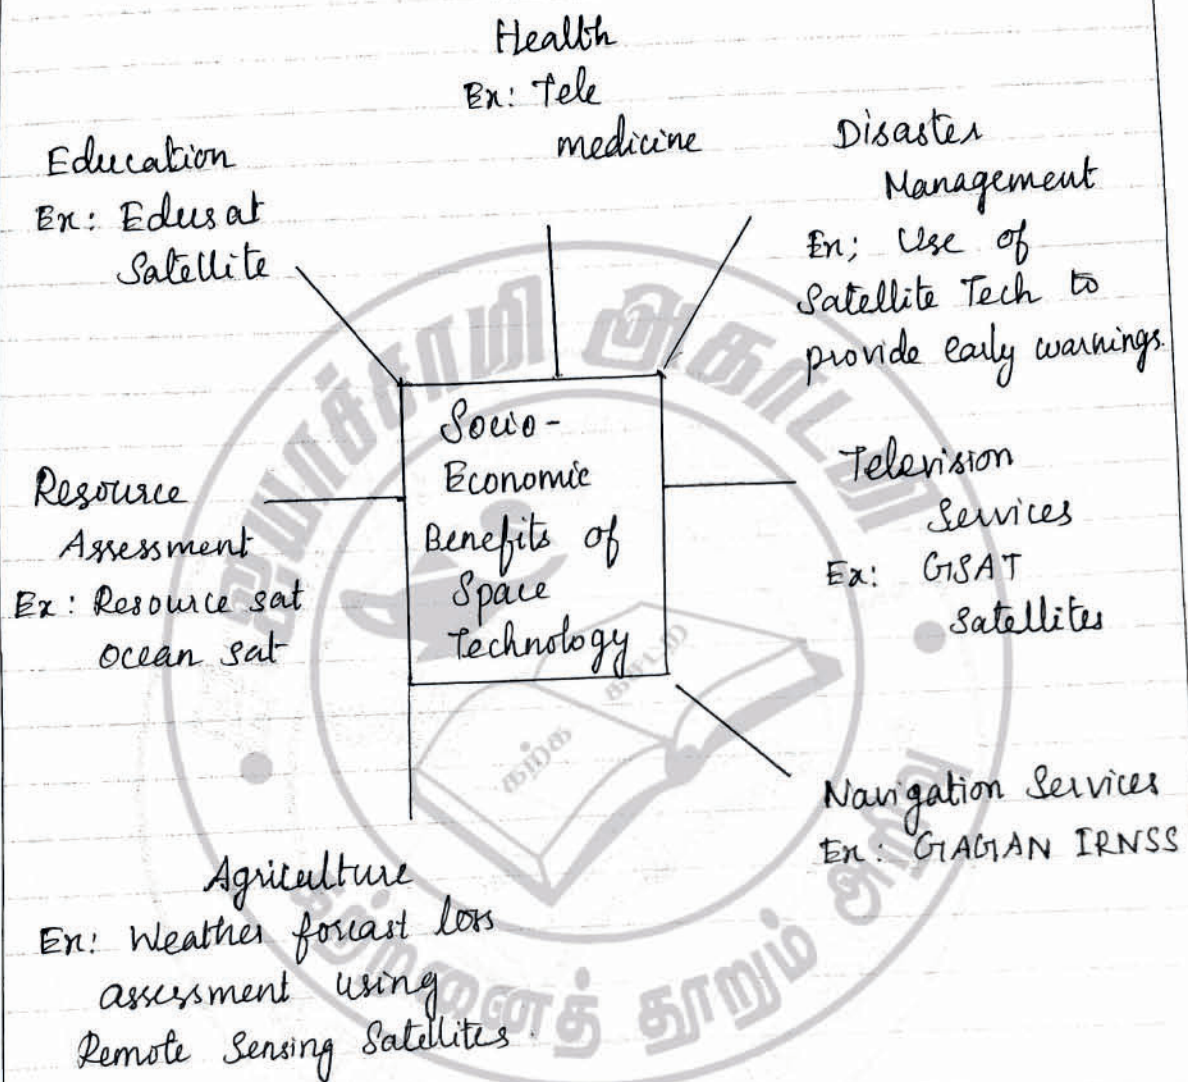 Health
Ex: Tele
medicine
Education
Ex: Edusat
Satellite
Disaster
Management
Ex; Use of
Satellite Tech to
provide early warnings.
Socio-
Economic
Benefits of
Space
Technology
Resource
Assessment
Ex: Resource sat
Ocean sat
Television
Services
Ex: GSAT
Satellites
Navigation Services
Ex: GAGAN IRNSS
Agriculture
Ex: Weather forcast loss
assessment using
Remote Sensing Satellites.
ஐயாச்சாமி அகாடமி
கற்க கசடற
கற்றனைத் தூறும் அறிவு